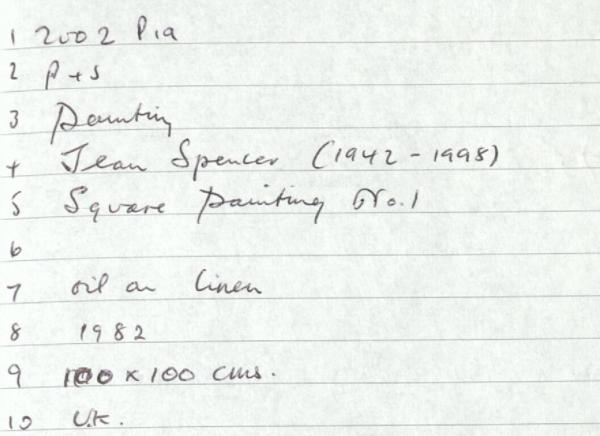 1 2002 Pia
2 P+S
3 Painting
4 Jean Spencer (1942-1998)
5 Square Painting No.1
6
7 oil on linen
8 1982
9 100 x 100 cms.
10 U.K.